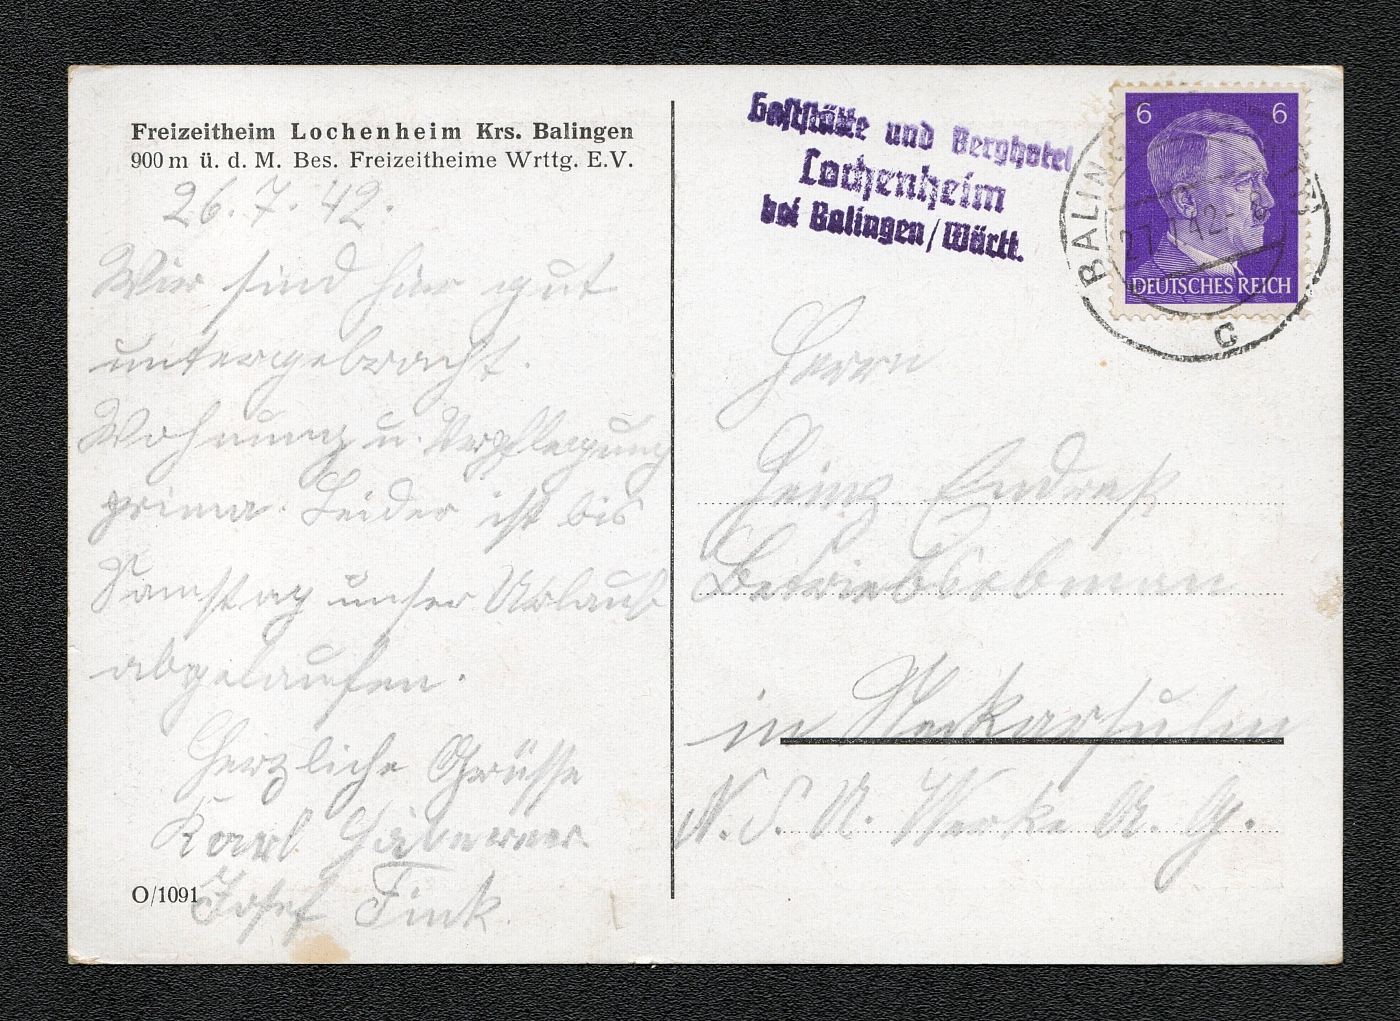 Freizeitheim Lochenheim Krs. Balingen
900 m ü. d. M. Bes. Freizeitheime Wrttg. E.V.
26. 7. 42.
Wir sind hier gut
untergebracht.
Wohnung u. Verpflegung
prima. Leider ist bis
Samstag unser Urlaub
abgelaufen.
Herzliche Grüsse
Karl
Josef Fink.
O/1091
Gaststätte und Berghotel
Lochenheim
bei Balingen/Württ.
6 6
DEUTSCHES REICH
BALIN
27. 7. 42. - 8
c
Herrn
Heinz Endreß
Betriebsobmann
in Neckarsulm
N. S. U. Werke A. G.